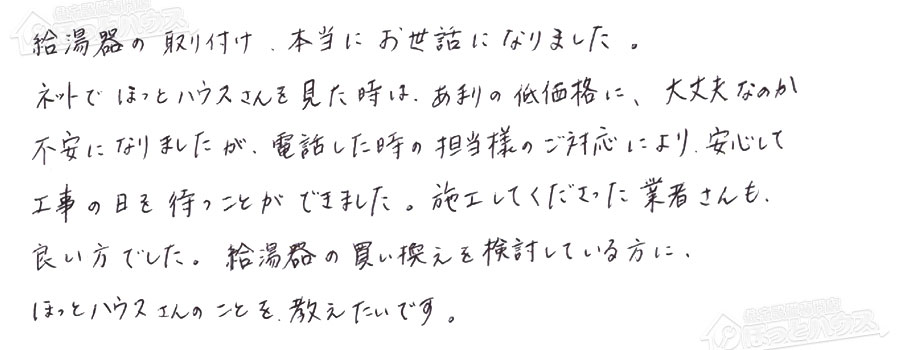 給湯器の取り付け、本当にお世話になりました。
ネットでほっとハウスさんを見た時は、あまりの低価格に、大丈夫なのか
不安になりましたが、電話した時の担当様のご対応により、安心して
工事の日を待つことができました。施工してくださった業者さんも、
良い方でした。給湯器の買い換えを検討している方に、
ほっとハウスさんのことを、教えたいです。
ほっとハウス